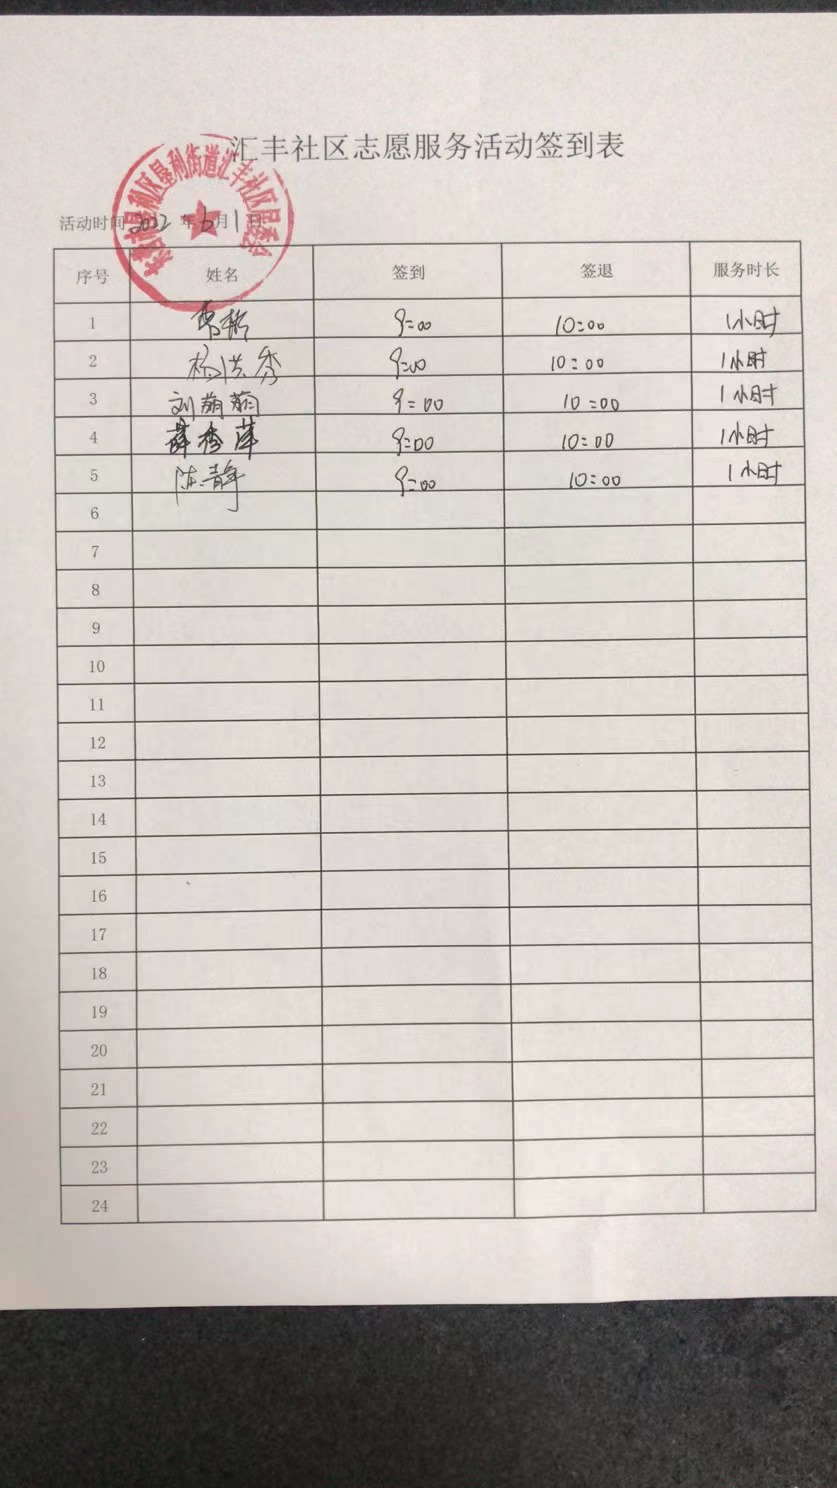 汇丰社区志愿服务活动签到表
东营市垦利区垦利街道汇丰社区居委会
活动时间 2022 年 6 月 1 日
序号 姓名 签到 签退 服务时长
1 9:00 10:00 1小时
2 杨洪秀 9:00 10:00 1小时
3 刘萌萌 9:00 10:00 1小时
4 薛秀萍 9:00 10:00 1小时
5 陈静 9:00 10:00 1小时
6
7
8
9
10
11
12
13
14
15
16
17
18
19
20
21
22
23
24